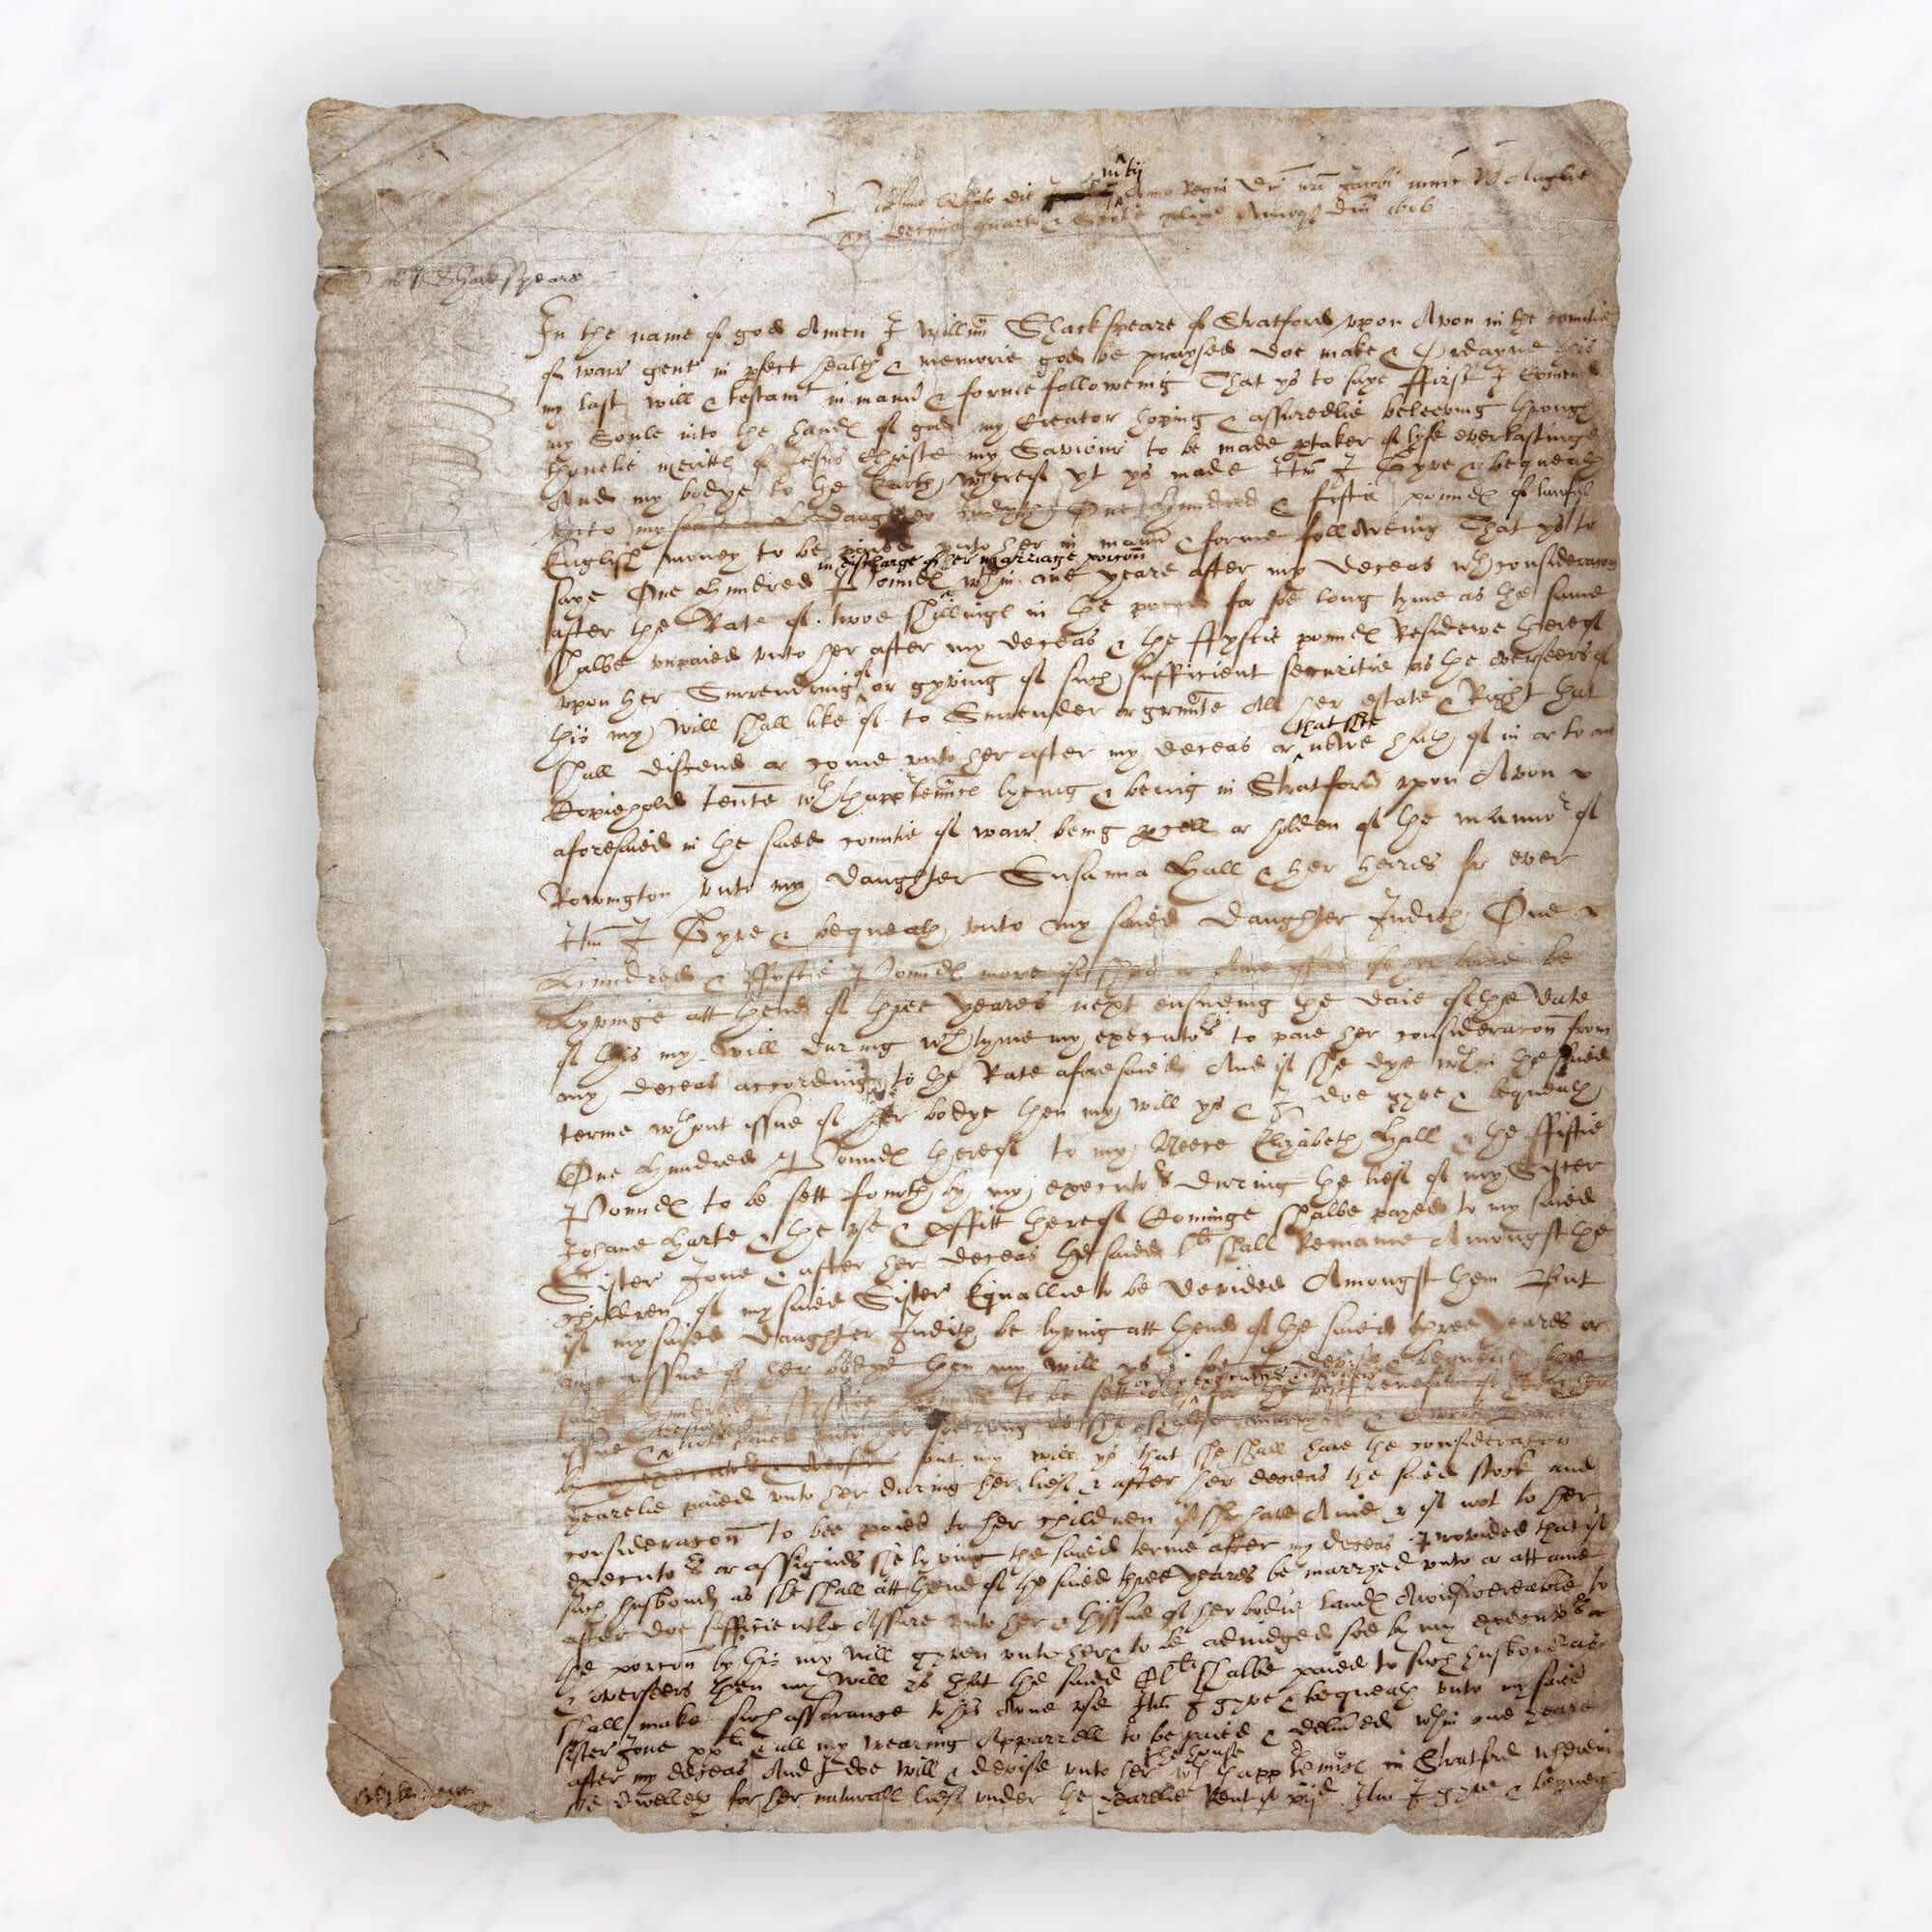 Vicesimo Quinto die Januarii Mtij Anno Regni Dni nri Jacobi nunc R Anglie
&c decimo quarto & Scotie xlixo Annoqz Dni 1616
Shackspeare
In the name of god Amen I Willim Shackspeare of Stratford vpon Avon in the countie
of warr gent in pfect health & memorie god be praysed doe make & Ordayne this
my last will & testamt in mannr & forme followeing That ys to saye ffirst I Comend
my Soule into the handℯ of god my Creator hoping & assuredlie beleeving through
thonelie merittℯ of Jesus Christe my Saviour to be made ptaker of lyfe everlastinge
And my bodye to the Earth whereof yt ys made Itm I Gyve & bequeath
vnto my sonne in L Daughter Judyth One Hundred & fyftie poundℯ of lawfull
English money to be paied vnto her in mannr & forme followeing That ys to
in discharge of her marriage porcion
saye One Hundred Poundℯ wthin one yeare after my deceas wth consideracion
after the Rate of twoe shillingℯ in the pound for soe long tyme as the same
shalbe vnpaied vnto her after my deceas & the ffyftie poundℯ Residewe thereof
vpon her Surrendring of or gyving of such sufficient securitie as the overseers of
this my will shall like of to Surrender or graunte All her estate & Right that
shall discend or come vnto her after my deceas or that she nowe hath of in or to one
Copiehold tenemte wth thappurtenncℯ lyeing & being in Stratford vpon Avon
aforesaied in the saied countie of warr being pcell or holden of the mannor of
Rowington vnto my daughter Susanna Hall & her heires for ever
Itm I Gyve & bequeath vnto my saied Daughter Judith One
Hundred & ffyftie Poundℯ more if shee or Anie issue of her bodie be
Lyvinge att thend of three yeares next ensueing the daie of the date
of this my will during wch tyme my executors to paie her consideracion from
my deceas according to the Rate aforesaied And if she dye wthin the saied
terme wthout issue of her bodye then my will ys & I doe gyve & bequeath
One Hundred Poundℯ thereof to my Neece Elizabeth Hall & the ffiftie
Poundℯ to be sett fourth by my executors during the lief of my Sister
Johane Harte & the vse & pffitt thereof Cominge shalbe payed to my saied
Sister Jone & after her deceas the saied lli shall Remaine Amongst the
children of my saied Sister Equallie to be devided Amongst them But
if my saied daughter Judith be lyving att thend of the saied three yeares or
anie yssue of her bodye then my will ys & soe I devise & bequeath the
by my executors & overseers
saied Hundred & ffyftie Poundℯ to be sett out for the best benefitt of her & her
issue & the stock not to be paied vnto her soe long as she shalbe marryed & Covert Baron
by my executors & overseers but my will ys that she shall have the consideracion
yearelie paied vnto her during her lief & after her deceas the saied stock and
consideracion to bee paied to her children if she have Anie & if not to her
executors or assignes she lyving the saied terme after my deceas Provided that if
such husbond as she shall att thend of the saied three yeares be marryed vnto or att anie
after doe sufficientlie Assure vnto her & thissue of her bodie landℯ Awnswereable to
the porcion by this my will gyven vnto her & to be adiudged soe by my executors &
& overseers then my will ys that the saied CLli shalbe paied to such husbond as
shall make such assurance to his owne vse Itm I gyve & bequeath vnto my saied
sister Jone xxli & all my wearing Apparrell to be paied & delivered wthin one yeare
after my deceas And I doe will & devise vnto her the house wth thappurtenncℯ in Stratford wherein
she dwelleth for her naturall lief vnder the yearelie Rent of xijd Itm I gyve & bequeath